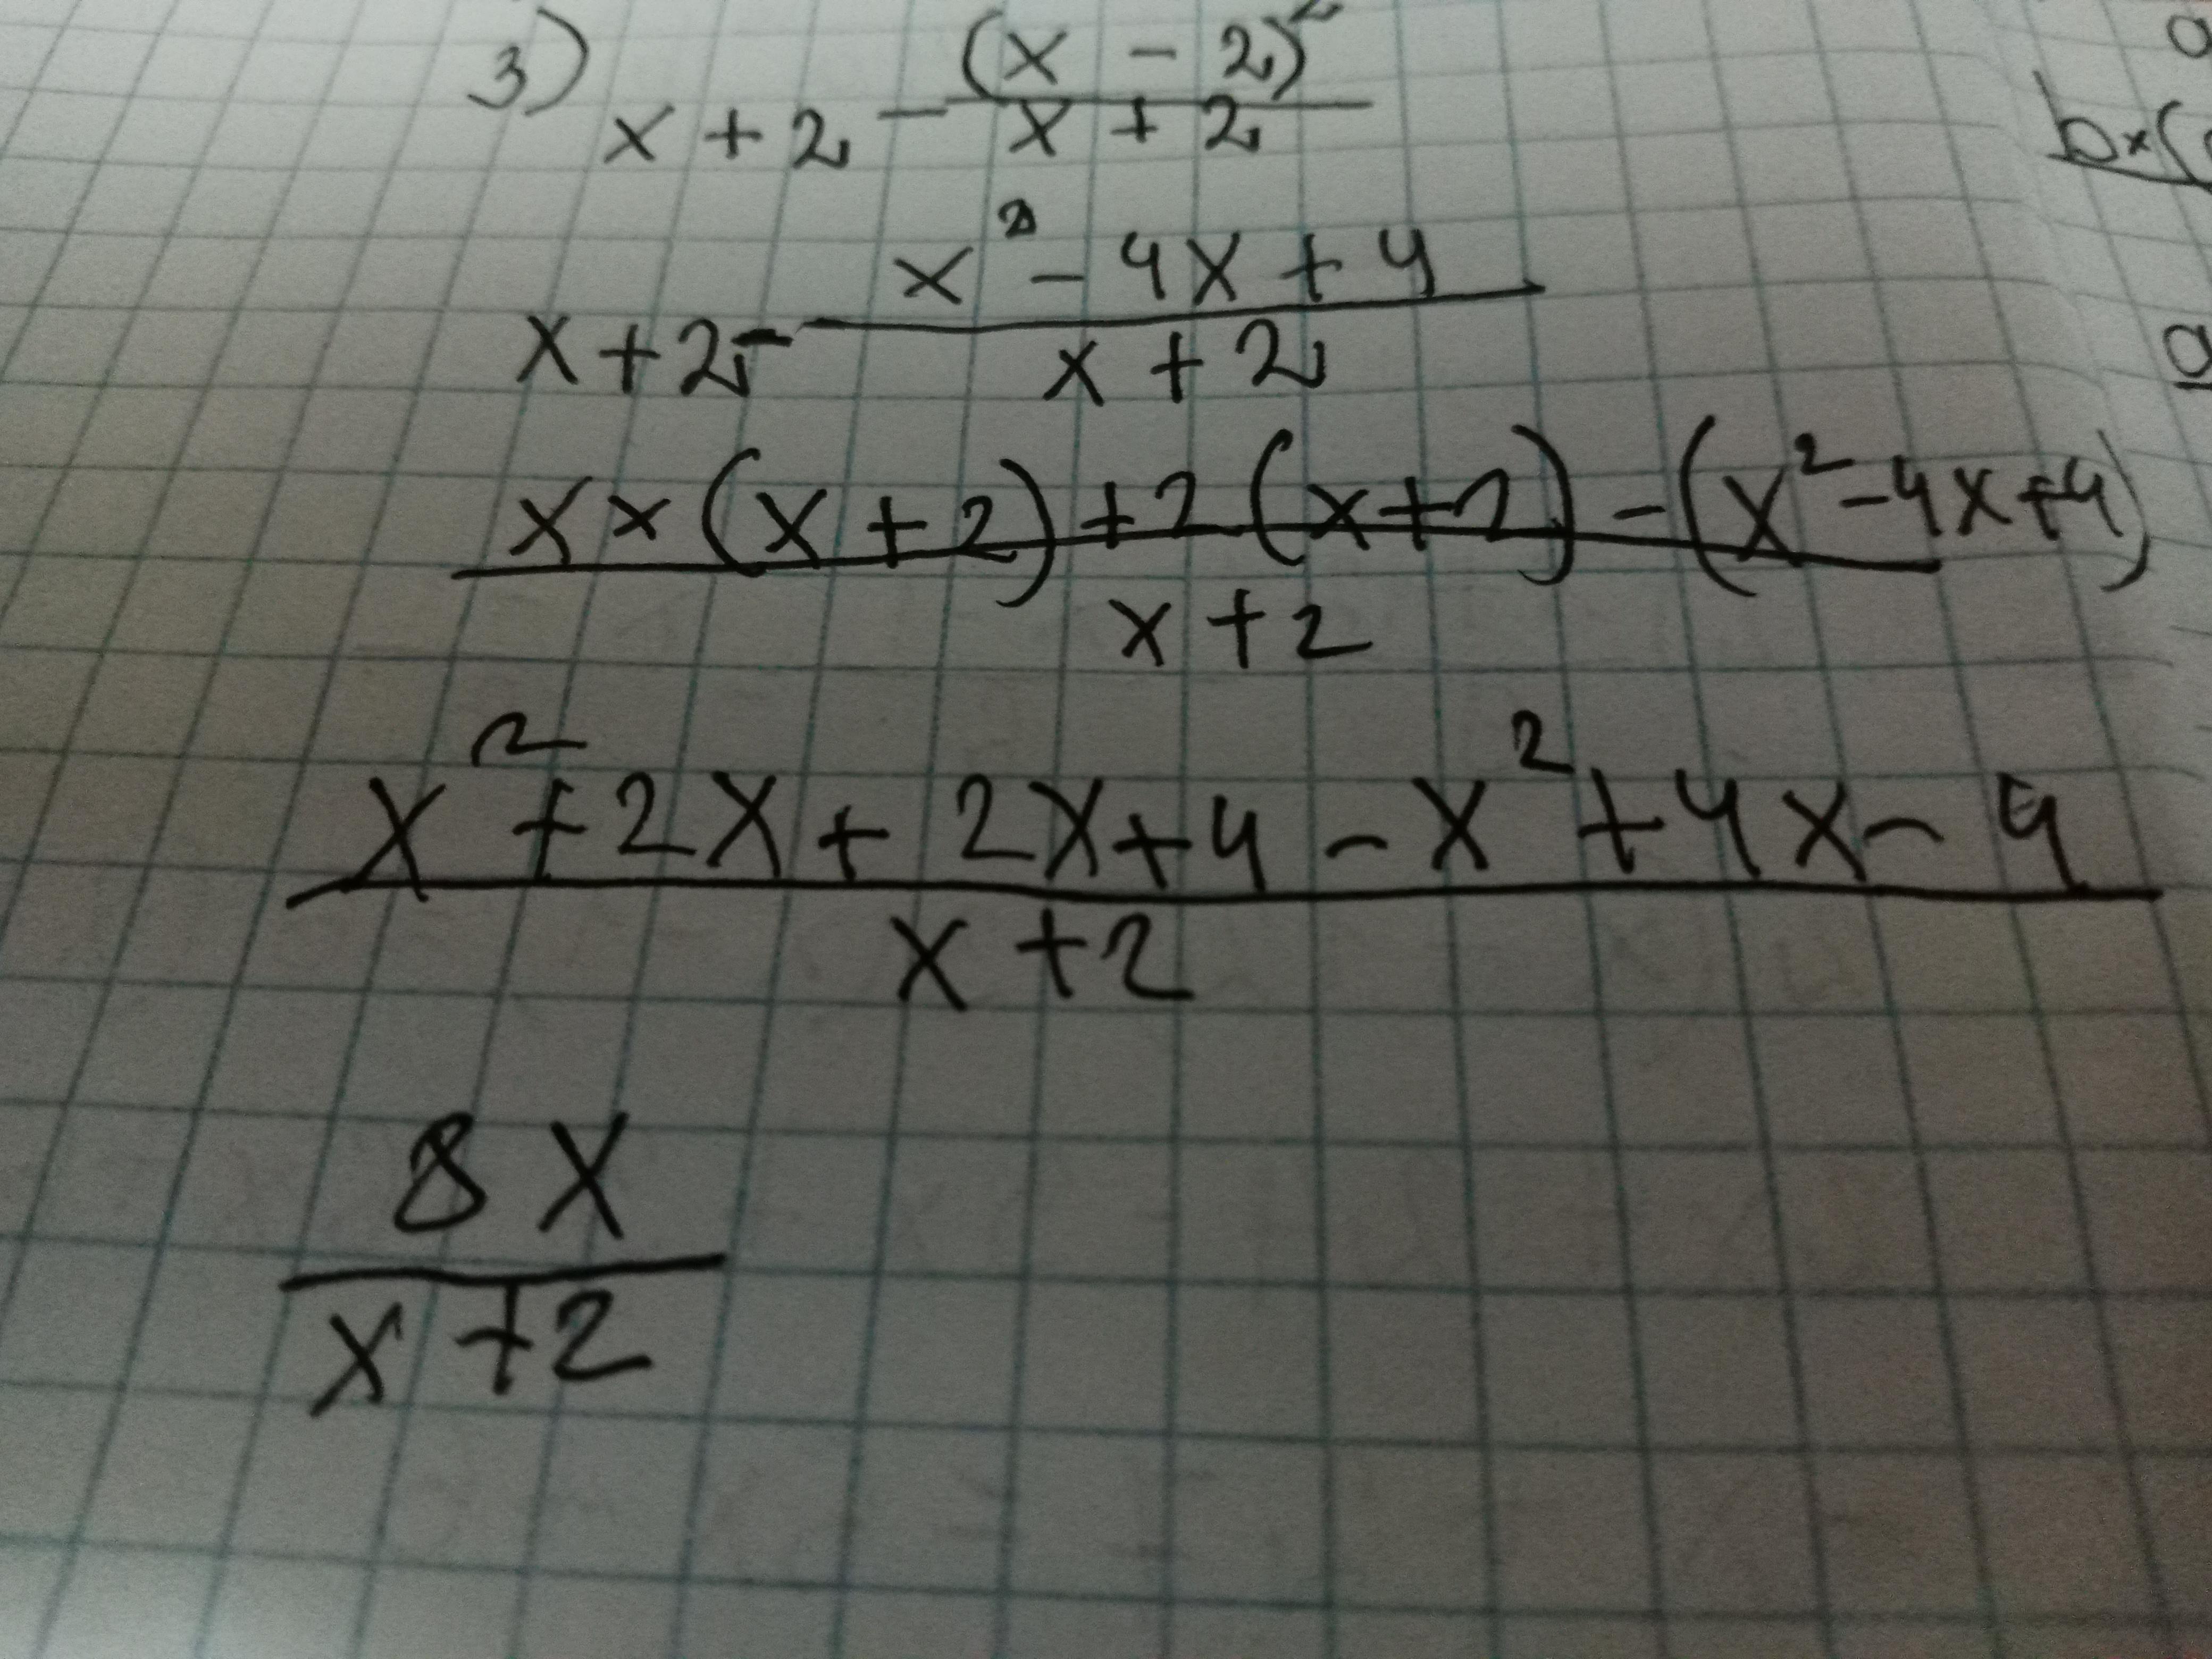 3) x + 2 - (x - 2)² / x + 2
x + 2 - x² - 4x + 4 / x + 2
x × (x + 2) + 2 (x + 2) - (x² - 4x + 4) / x + 2
x² + 2x + 2x + 4 - x² + 4x - 4 / x + 2
8x / x + 2
b×(
a